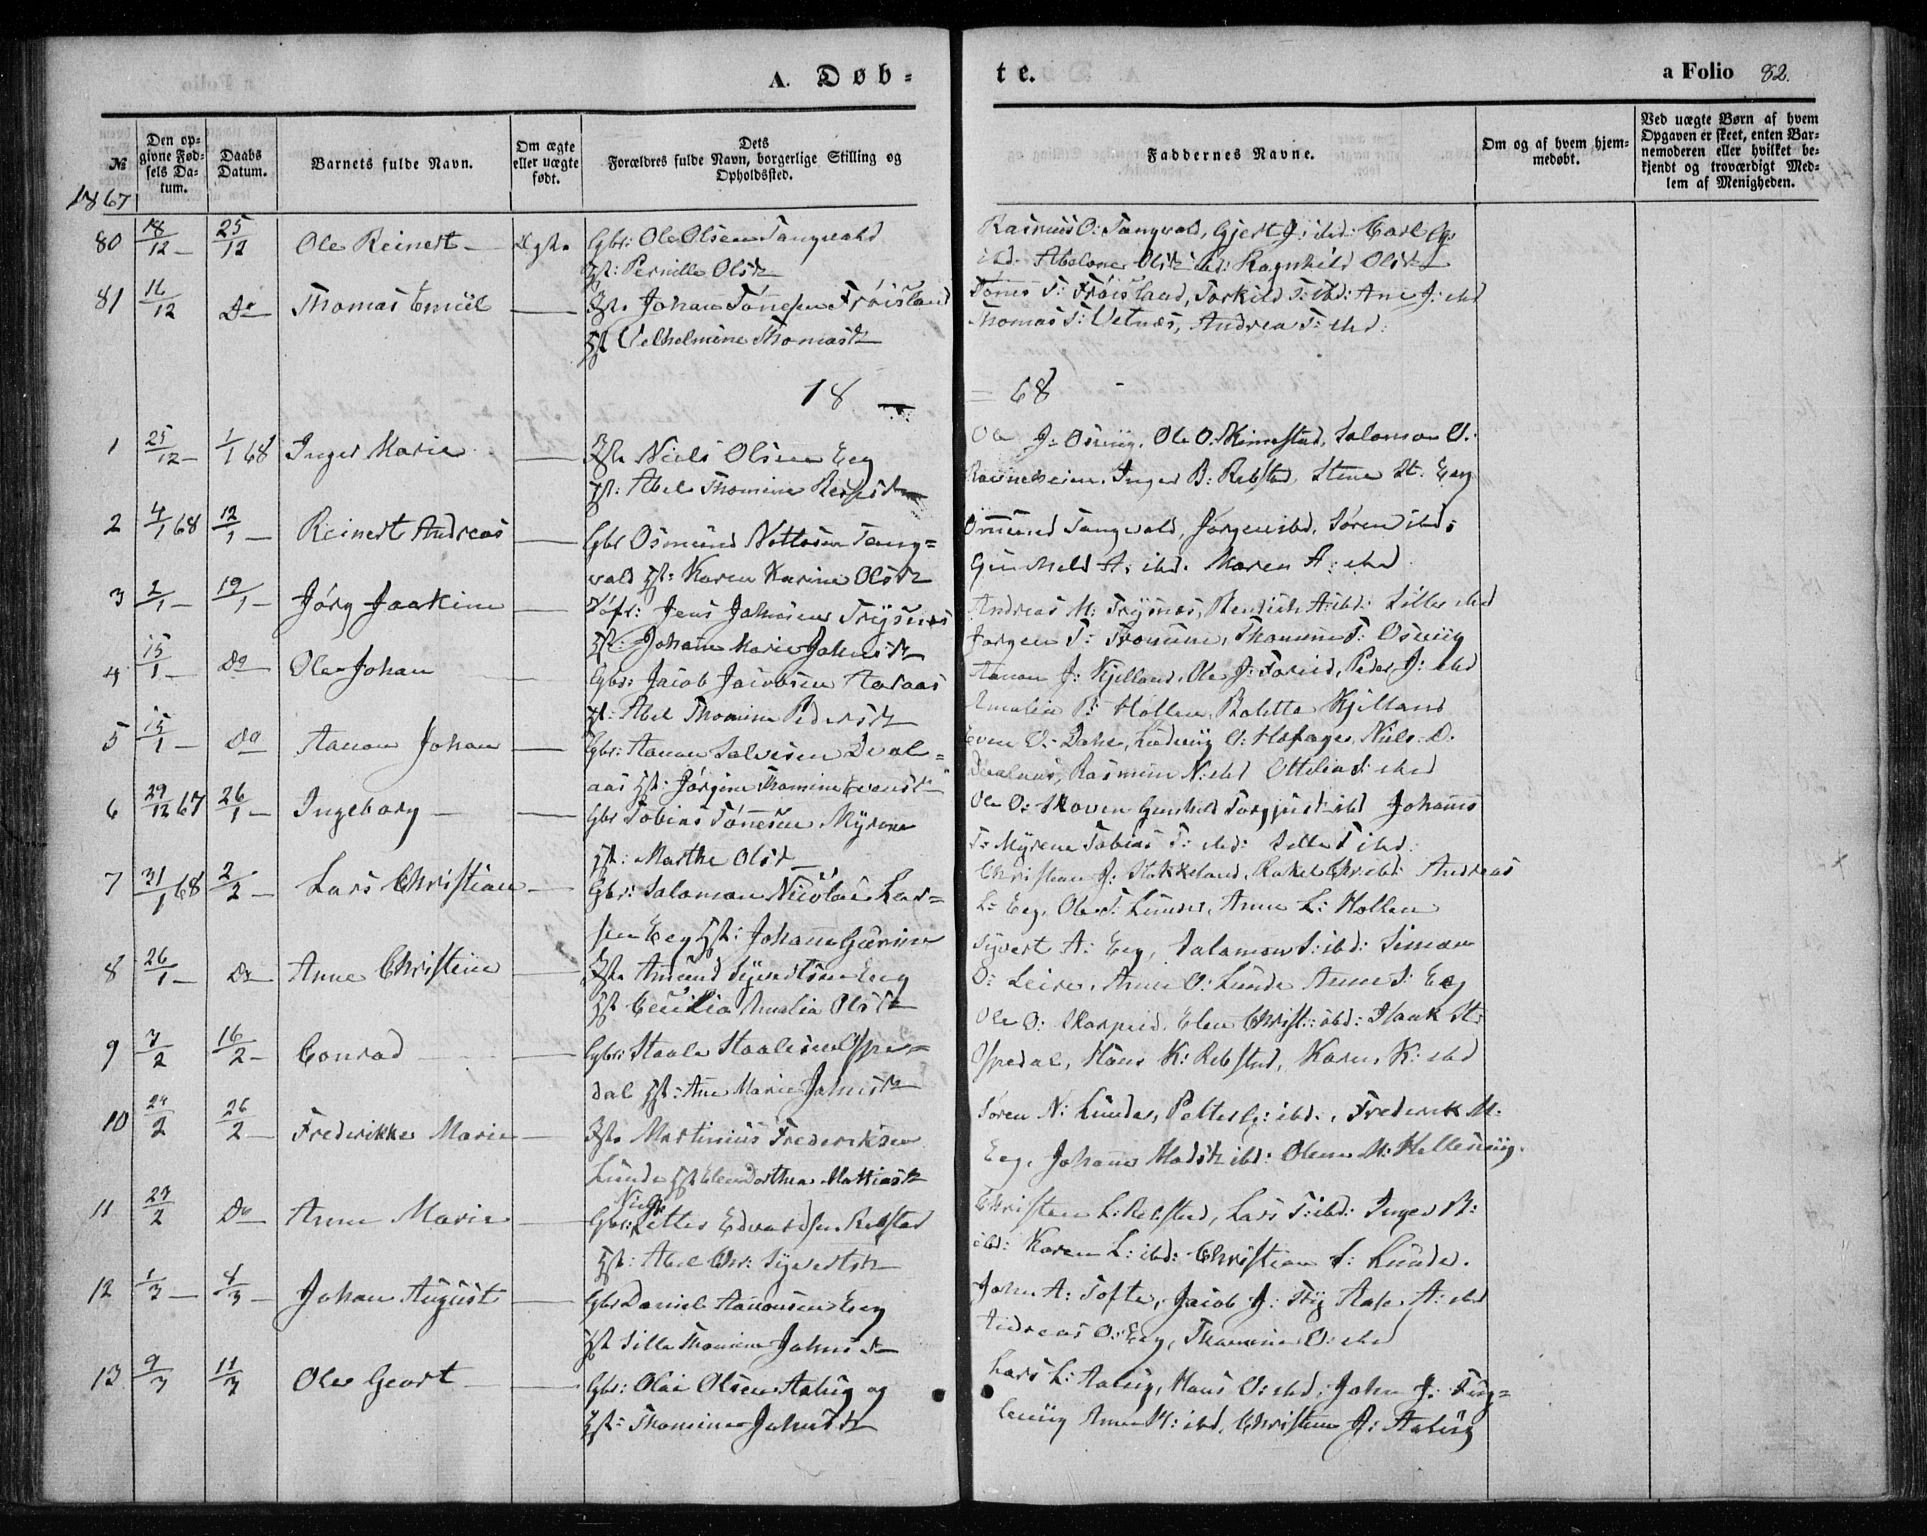 A. Døb-
te.
a Folio 82.
№
Den op-
givne Fød-
sels Da-
tum.
Daabs
Datum.
Barnets fulde Navn.
Om ægte
eller uægte
født.
Dets
Forældres fulde Navn, borgerlige Stilling og
Opholdssted.
Faddernes Navne.
Om og af hvem hjem-
medøbt.
Ved uægte Børn af hvem
Opgaven er skeet, enten Bar-
nemoderen eller hvilket be-
kjendt og troværdigt Med-
lem af Menigheden.
1867
80 18/12 - 25/12 Ole Reinert - Ægte Gbr: Ole Olsen Tangvald
Hst: Pernille Olsdt
Rasmus O: Tangvald, Gjert J: ibd: Carl
ibd. Abelone Olsdt ibd: Ragnhild Olsdt
81 11/12 Do Thomas Emiil — Johan Tönnesen Tröisland
Hst Velhelmine Thomasdt
Tönes T: Tröisland, Torkild T: ibd: Ane J: ibd
Thomas T: Vetnæs, Andrea T: ibd.
18 —
= 68
1 25/12 - 1/1 68 Inger Marie — Niels Olsen Eeg
Hst: Abel Thomine
Ole J: Osviig, Ole O: Skimestad, Salomon O:
Inger B: Rebstad, Stine St: Eeg
2 4/1 68 12/1 - Reinert Andreas — Gbr Osmund Nottosen Tang=
vald Hst: Karen Karine Olsdt
Tangvald, Jørgen ibd, Søren ibd:
Gunhild A: ibd. Maren A: ibd
3 2/1 - 19/1 - Jörg Joakim — Jens Johnsen Trÿsnes
Hst: Johanne Marie Johnsdt
Andreas M: Trysnes, Henrich A: ibd: Sille ibd
Jørgen T: Tromme, Thomine T: Osviig
4 15/1 - Do Ole Johan — Gbr: Jacob Jacobsen Aaraas
Hst: Abel Thomine Pedersdt
Aanon J: Kjelland, Ole J: Torvid, Peder J: ibd
Amalia P: Hollen, Boletta Kjelland
5 15/1 - Do Aanon Johan — Gbr: Aanon Salvesen Dval=
aas Hst: Jørgine Thomine Evensdt
Even O: Dahl, Ludviig O: Hofage, Niels D.
Dvalaas, Rasmine N: ibd Ottilia S: ibd
6 29/12 67 26/1 - Ingeborg — Gbr Tobias Tönnesen Myrene
Hst: Marthe Olsdt
Ole O: Skoven Gunhild Torgjusdt ibd Johanne
T: Myrene Tobias T: ibd: Sille T ibd.
7 31/1 68 2/2 - Lars Christian — Gbr: Salomon Nicolai Lar=
sen Eeg Hst: Johanne Gurine
Christian J: Stokkeland, Rakel Chr ibd: Andreas
L: Eeg, Ole T: Lunde, Anne L: Hollen
8 26/1 - Do Anne Christine — Amund Syvertsen Eeg
Hst Cecilia Amalia Olsdt
Syvert A: Eeg, Salamon S: ibd: Simon
O: Leire, Anne O: Lunde Anne S: Eeg
9 7/2 16/2 - Conrad — Gbr: Staale Staalesen Ospe=
dal Hst: Ane Marie Johnsdt
Ole O: Skarpeid, Elen Christ: ibd: Isaak St:
Ospedal, Hans K: Rebstad, Karen K: ibd
10 24/2 26/2 - Frederikke Marie — Martinius Frederiksen
Lunde Hst Elen Dorthea Mathiasdt
Søren N: Lunde, Petter G: ibd., Frederik M:
Eeg, Johanne Madsdt ibd: Olene M: Hellesviig.
11 23/2 Do Anne Marie — Gbr: Niels Petter Edvardsen Rebstad
Hst: Abel Chr: Syvertsdt
Christen L: Rebstad, Lars T: ibd: Inger B:
ibd: Karen L: ibd: Christian S: Lunde.
12 1/3 - 4/3 - Johan August — Gbr Daniel Aanonsen Eeg
Hst Sille Thomine Johnsdt
John A: Tofte, Jacob J: Try Aase A: ibd
Andreas O: Eeg, Thomine O: ibd
13 9/3 11/3 Ole Geort — Gbr: Olai Olsen Aalvig og
Hst: Thomine Johnsdt
Lars L: Aalvig, Hans O: ibd: John J: Tug=
Anne M: ibd, Christine J: Aalvig